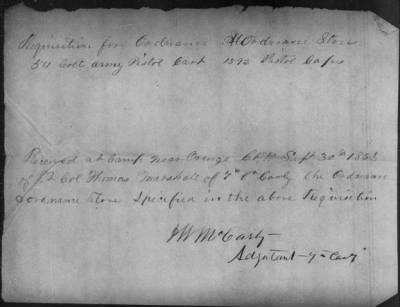 Requisition for Ordnance & Ordnance Stores
54 Colt army Pistol Cart 1592 Pistol Caps
Received at Camp near Orange C.H. Sept 30th 1863
of Lt Col Thomas Marshall of 7th Va Cavly the Ordnance
& ordnance stores specified in the above Requisition
McCarty
Adjutant 7th Cavy